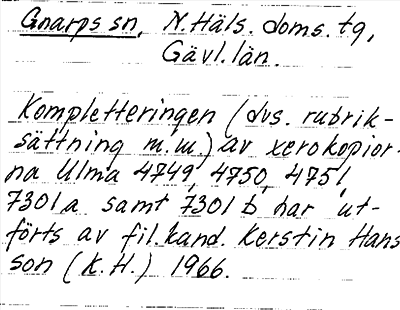 Gnarps sn, N. Häls. doms. tg,
Gävl. län.
Kompletteringen (dvs. rubrik-
sättning m.m.) av xerokopior-
na Ulma 4749, 4750, 4751,
7301a samt 7301 b har ut-
förts av fil. kand. Kerstin Hans
son (K. H.) 1966.